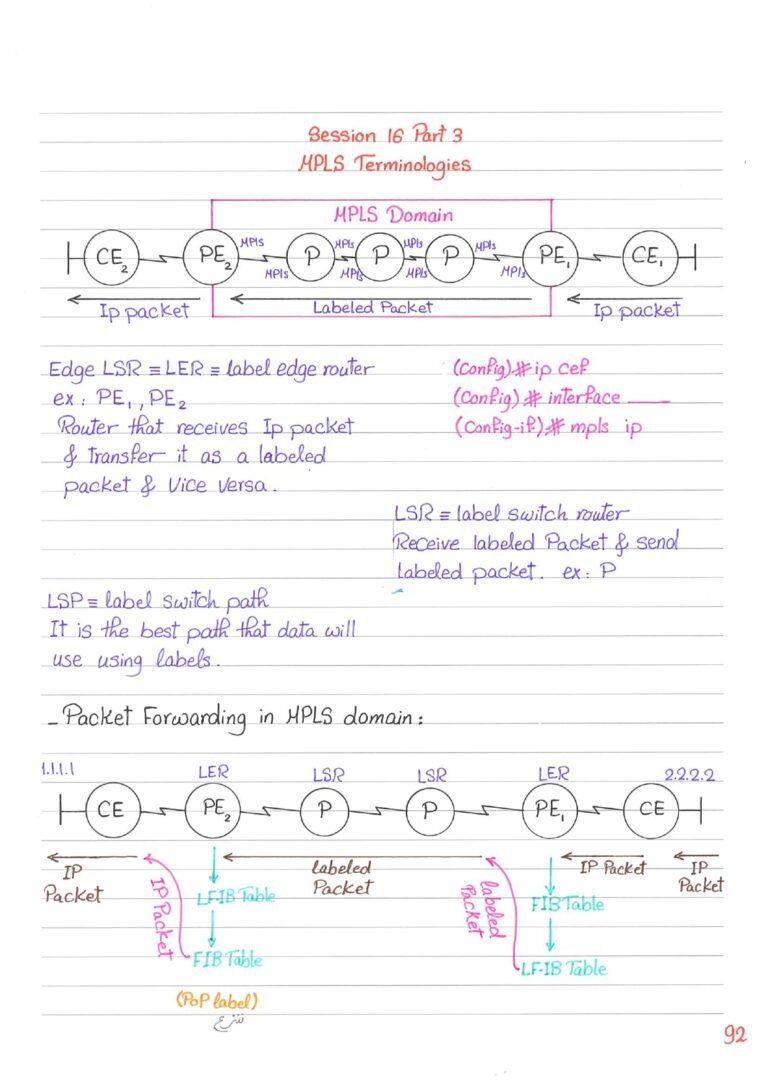 Session 16 Part 3
MPLS Terminologies
MPLS Domain
CE2 PE2 MPLS MPLS P MPLS MPLS P MPLS MPLS P MPLS MPLS PE1 CE1
Ip packet Labeled Packet Ip packet
Edge LSR ≡ LER ≡ label edge router
ex: PE1, PE2
Router that receives Ip packet
& transfer it as a labeled
packet & Vice Versa.
(Config)# ip cef
(Config)# interface ____
(Config-if)# mpls ip
LSR ≡ label switch router
Receive labeled Packet & send
labeled packet. ex: P
LSP ≡ label switch path
It is the best path that data will
use using labels.
- Packet Forwarding in MPLS domain:
1.1.1.1 LER LSR LSR LER 2.2.2.2
CE PE2 P P PE1 CE
IP Packet
IP Packet
LF-IB Table
FIB Table
(PoP label)
labeled Packet
labeled Packet
IP Packet
IP Packet
FIB Table
LF-IB Table
92